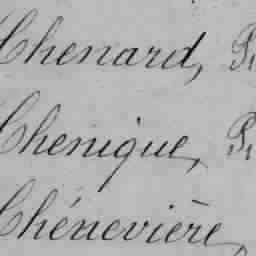 Chenard, P.
Chenique, P.
Chénevière,